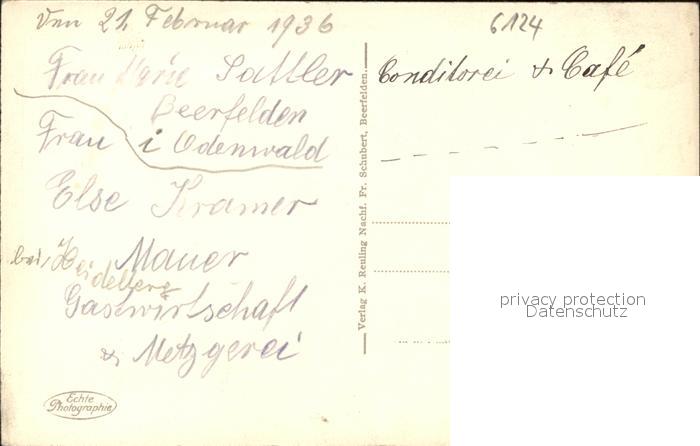 den 21. Februar 1936
6124
Frau Marie Sattler
Conditorei & Café
Beerfelden
Frau i Odenwald
Else Kramer
Mauer
bei Heidelberg
Gastwirtschaft
& Metzgerei
Echte
Photographie
Verlag K. Reuling Nachf. Fr. Schubert, Beerfelden.
privacy protection
Datenschutz